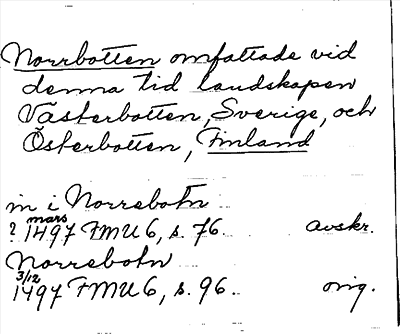 Norrbotten omfattade vid
denna tid landskapen
Västerbotten, Sverige, och
Österbotten, Finland
in i Norrebotn
mars
? 1497 FMU 6, s. 76. avskr.
Norrebotn
3/12
1497 FMU 6, s. 96. orig.